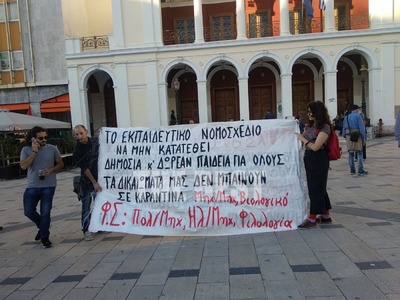 ΤΟ ΕΚΠΑΙΔΕΥΤΙΚΟ ΝΟΜΟΣΧΕΔΙΟ
ΝΑ ΜΗΝ ΚΑΤΑΤΕΘΕΙ
ΔΗΜΟΣΙΑ κ' ΔΩΡΕΑΝ ΠΑΙΔΕΙΑ ΓΙΑ ΟΛΟΥΣ
ΤΑ ΔΙΚΑΙΩΜΑΤΑ ΜΑΣ ΔΕΝ ΜΠΑΙΝΟΥΝ
ΣΕ ΚΑΡΑΝΤΙΝΑ. Μηχ/Μης, Βιολογικό
Φ.Σ: Πολ/Μηχ, Ηλ/Μηχ, Φιλολογία